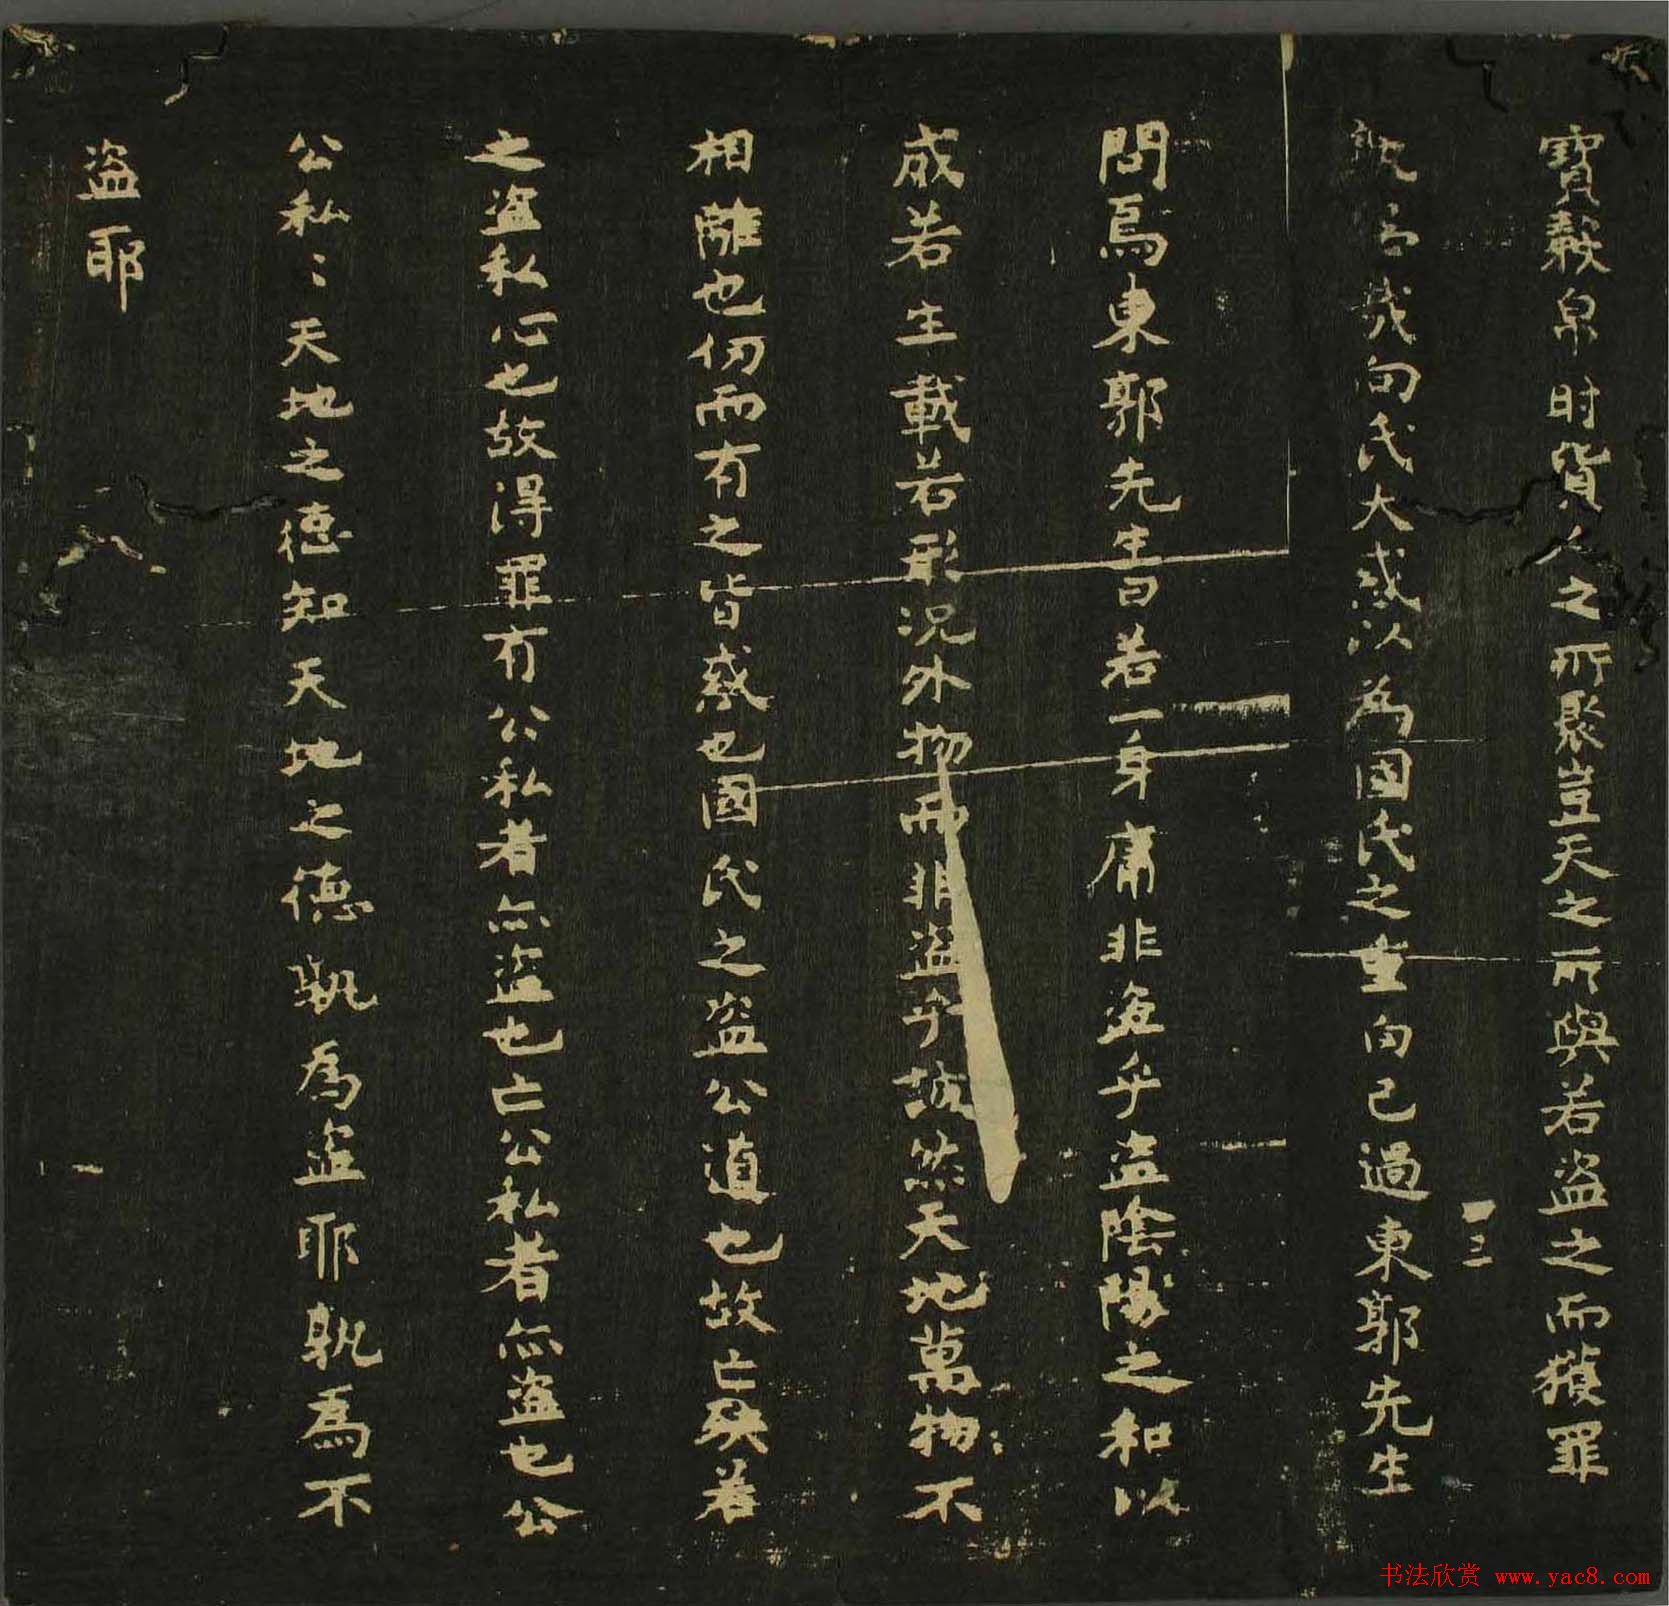 寶穀帛财貨人之所聚豈天之所與若盗之而獲罪
孰怨哉向氏大惑以為國氏之重向已過東郭先生
一三
問焉東郭先生曰若一身庸非盗乎盗陰陽之和以
成若生載若形况外物而非盗乎誠然天地萬物〻不
相離也仞而有之皆惑也國氏之盗公道也故亡殃若
之盗私心也故得罪有公私者亦盗也亡公私者亦盗也公
公私〻天地之德知天地之德孰為盗耶孰為不
盗耶
书法欣赏 www.yac8.com